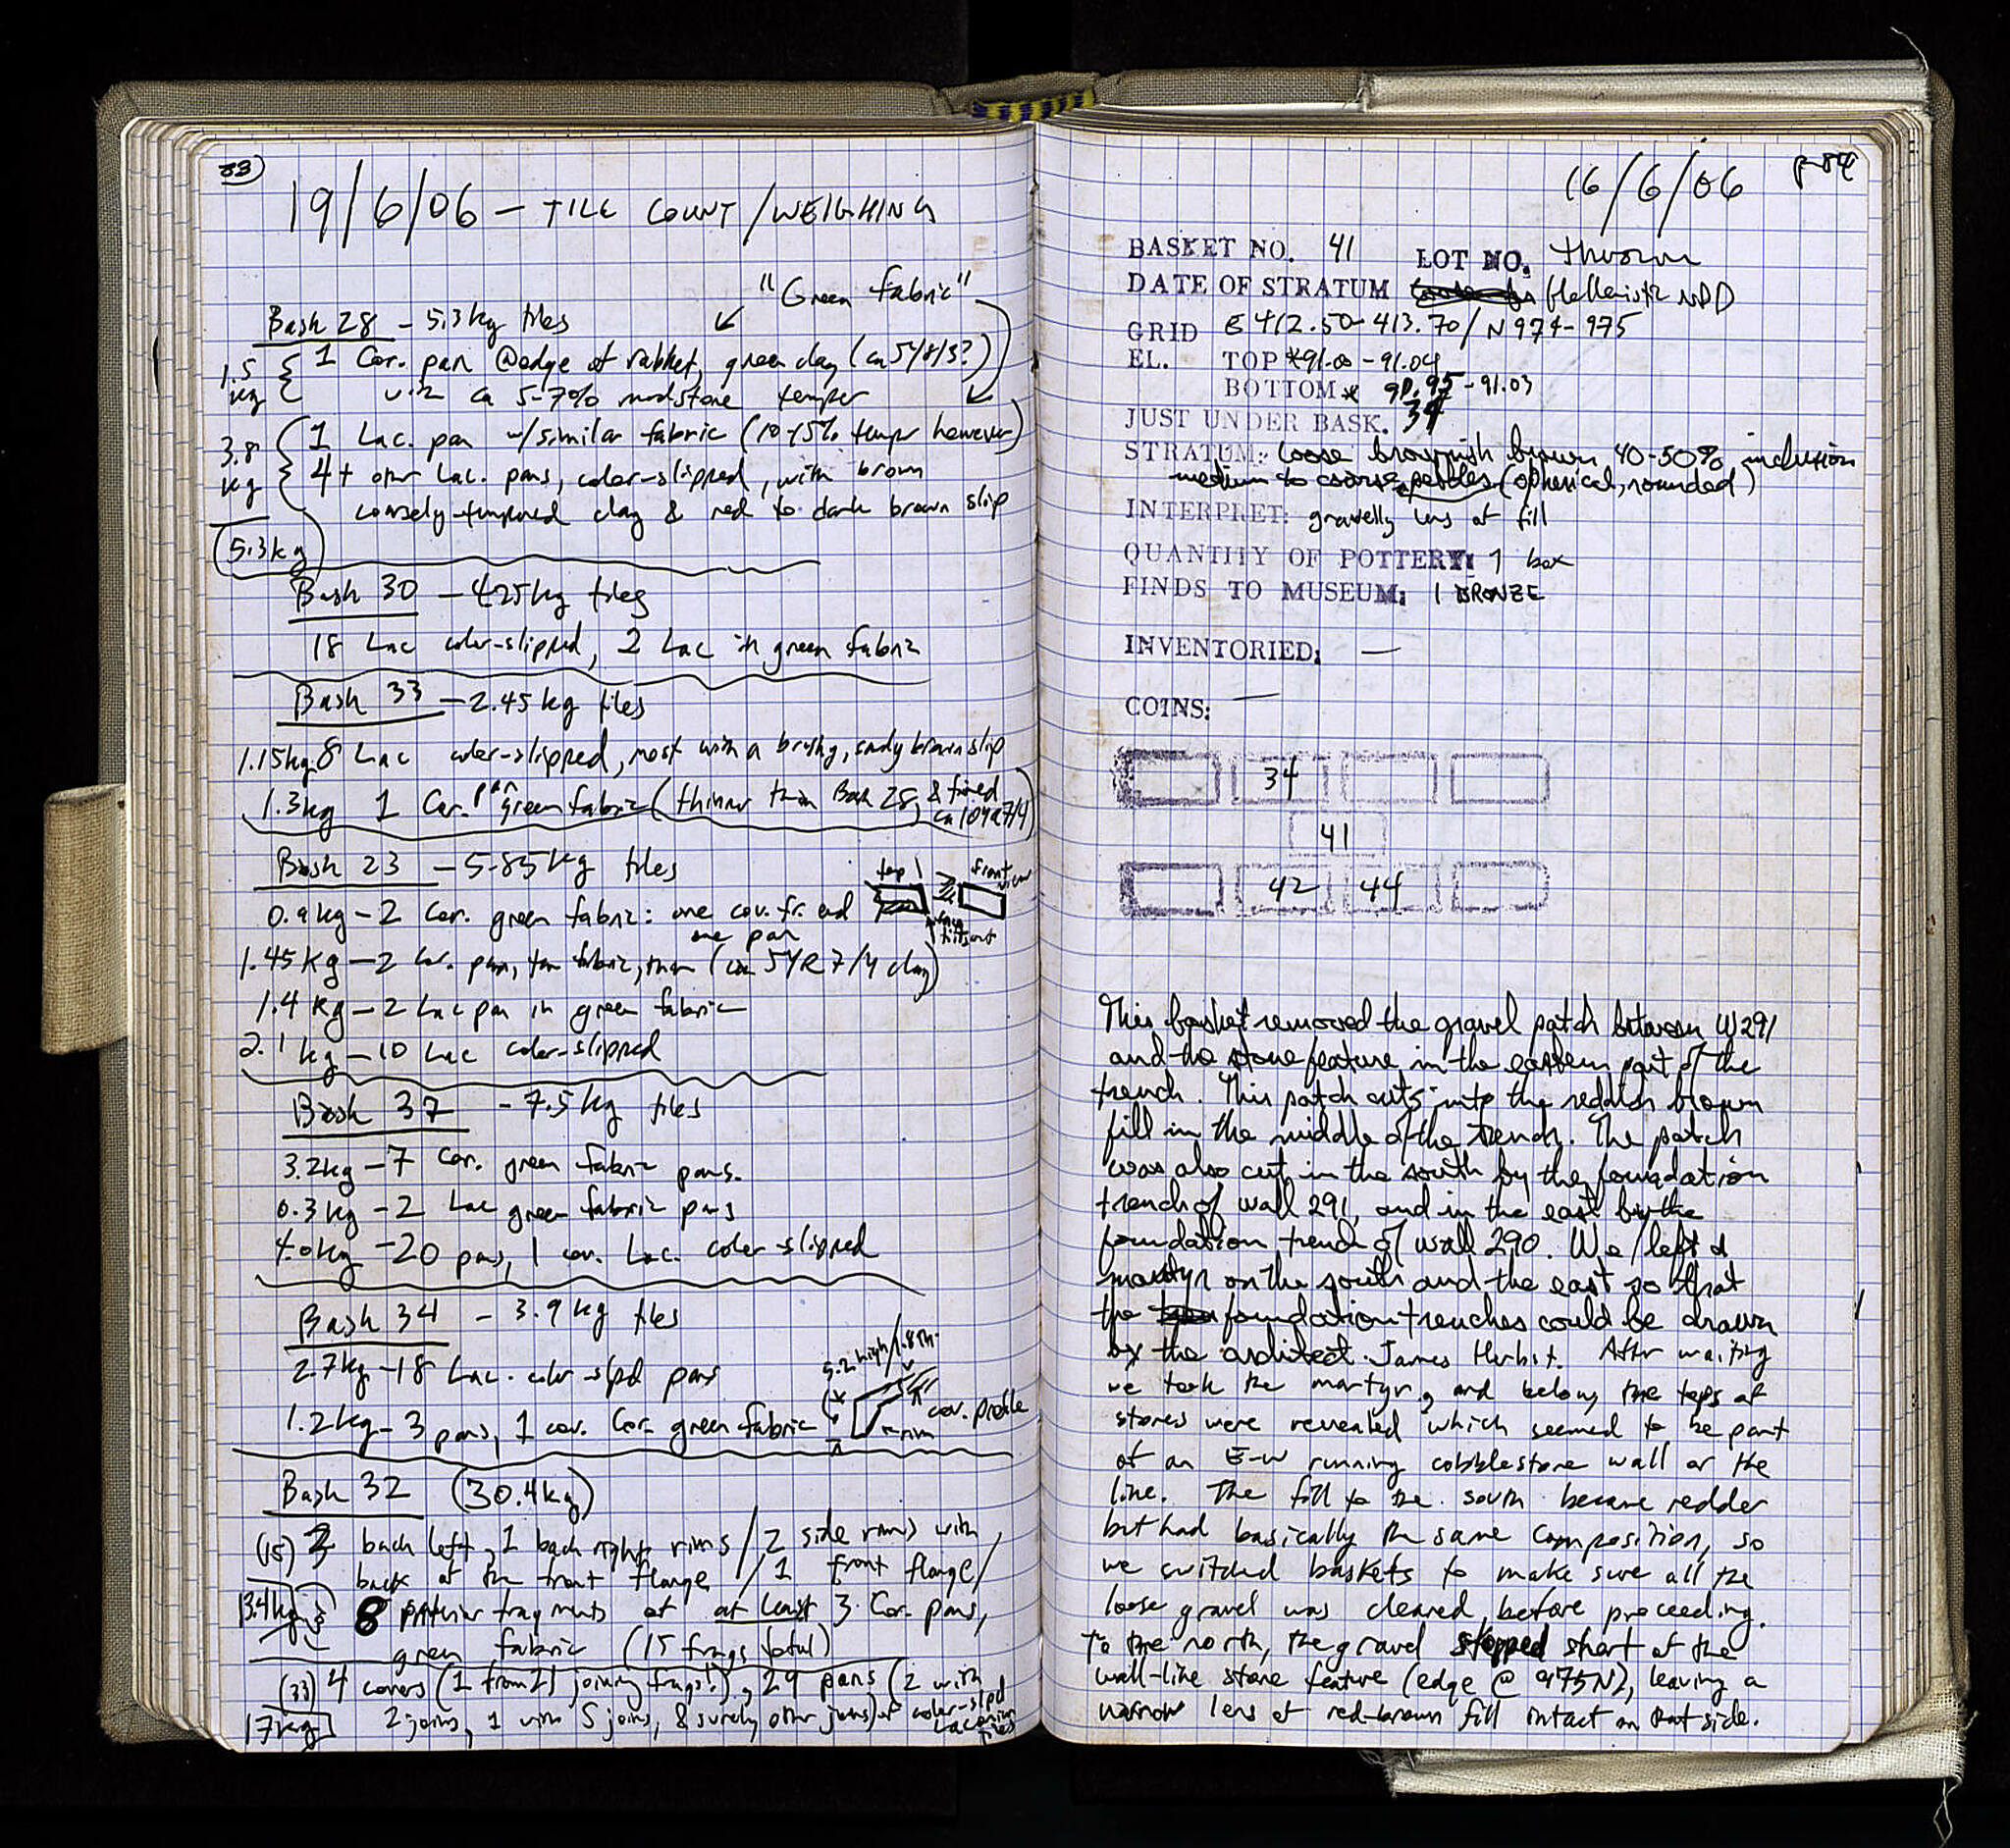 83)
19/6/06 – TILE COUNT/WEIGHING
"Green fabric"
Bask 28 – 5.3kg tiles
1.5 kg { 1 Cor. pan @edge of rabbet, green clay (ca 5Y8/3?)
with ca 5-7% mudstone temper
3.8 kg { 1 Lac. pan w/similar fabric (10-15% temper however)
4+ other Lac. pans, color-slipped, with brown
coarsely-tempered clay & red to dark brown slip
5.3kg
Bask 30 – 4.25kg tiles
18 Lac color-slipped, 2 Lac in green fabric
Bask 33 – 2.45 kg tiles
1.15kg. 8 Lac color-slipped, most with a brown slip
1.3kg 1 Cor. pan green fabric (thinner than Bask 28, & fired
ca 10YR7/4)
Bask 23 – 5.85kg tiles
top front view
0.9kg – 2 Cor. green fabric: one cov. fr. end
one pan
1.45 kg – 2 Cor. pan, tan fabric, (ca 5YR 7/4 clay)
1.4 kg – 2 Lac pan in green fabric
2.1 kg – 10 Lac color-slipped
Bask 37 – 7.5kg tiles
3.2kg – 7 Cor. green fabric pans.
0.3kg – 2 Lac green fabric pans
4.0kg – 20 pans, 1 cov. Lac. color-slipped
Bask 34 – 3.9kg tiles
2.7kg – 18 Lac. color-slpd pans
5.2 high/1.8 th.
1.2kg – 3 pans, 1 cov. Cor. green fabric
cov. profile
rim
Bask 32 (30.4kg)
(15) 3 back left, 1 back right rims/2 side rims with
back of the front flange / 1 front flange/
13.4kg 8 interior fragments of at least 3 Cor. pans,
green fabric (15 frags total)
(33) 4 covers (1 from 21 joining frags!), 29 pans (2 with
17kg 2 joins, 1 with 5 joins, & surely other joins) of color-slpd
Laconian tiles
16/6/06 p. 84
BASKET NO. 41 LOT NO. thrown
DATE OF STRATUM Hellenistic NPD
GRID E 412.50-413.70/N 974-975
EL. TOP *91.00-91.04
BOTTOM * 90.95-91.03
JUST UNDER BASK. 34
STRATUM: loose brownish brown 40-50% inclusion
medium to coarse pebbles (spherical, rounded)
INTERPRET: gravelly lens of fill
QUANTITY OF POTTERY: 1 box
FINDS TO MUSEUM: 1 BRONZE
INVENTORIED: —
COINS: —
34
41
42 44
This basket removed the gravel patch between W291
and the stone feature in the eastern part of the
trench. This patch cuts into the reddish brown
fill in the middle of the trench. The patch
was also cut in the south by the foundation
trench of wall 291, and in the east by the
foundation trench of wall 290. We left a
martyr on the south and the east so that
the foundation trenches could be drawn
by the architect James Herbst. After waiting
we took the martyr, and below, the tops of
stones were revealed which seemed to be part
of an E-W running cobblestone wall or the
like. The fill to the south became redder
but had basically the same composition, so
we switched baskets to make sure all the
loose gravel was cleared before proceeding.
To the north, the gravel stopped short of the
wall-like stone feature (edge @ 975N), leaving a
narrow lens of red-brown fill intact on that side.